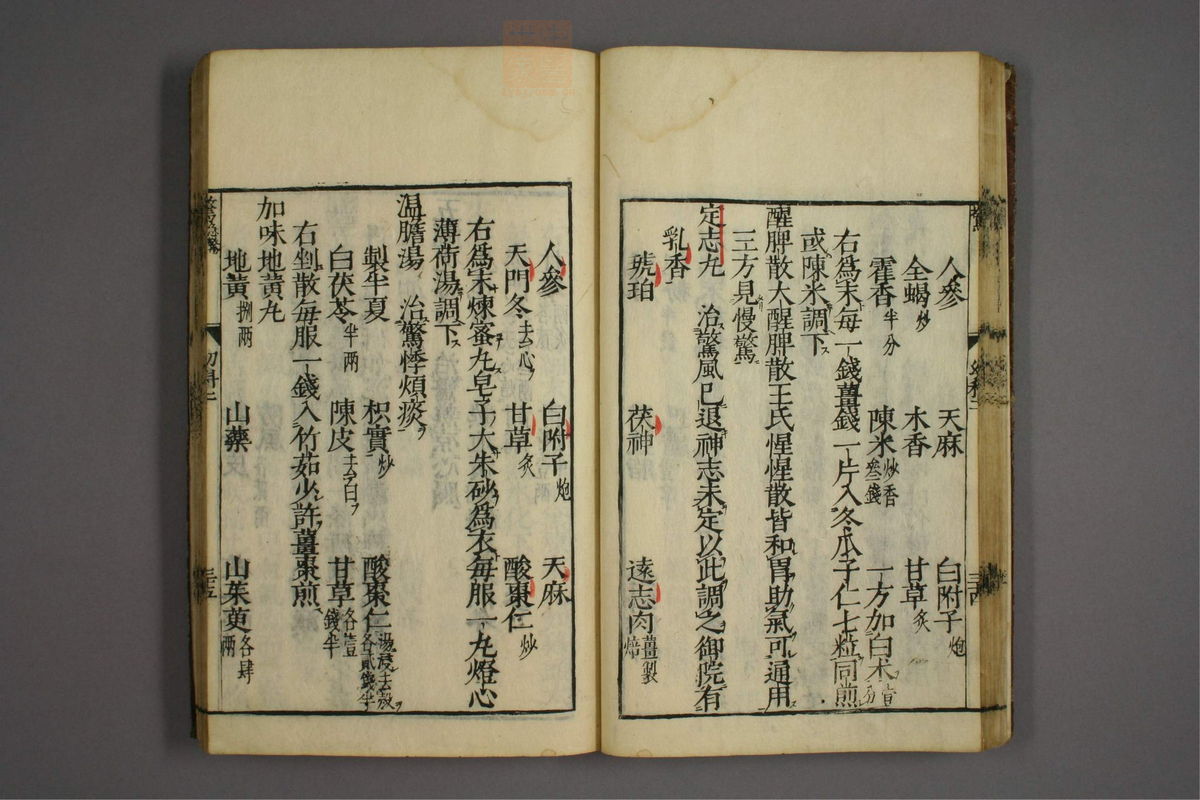 人參　天麻　白附子炮
全蝎炒　木香　甘草炙
藿香半分　陳米炒香叄錢　一方加白术壹分
右爲末每一錢薑錢一片入冬瓜子仁七粒同煎
或陳米調下
醒脾散大醒脾散王氏惺惺散皆和胃助氣可通用
三方見慢驚
定志丸　治驚風已退神志未定以此調之御院有
乳香
琥珀　茯神　遠志肉薑製焙
人參　白附子炮　天麻
天門冬去心　甘草炙　酸棗仁炒
右爲末煉蜜丸皂子大朱砂爲衣每服一丸燈心
薄荷湯調下
温膽湯　治驚悸煩痰
製半夏　枳實炒　酸棗仁湯浸去殼各貳錢半
白茯苓半兩　陳皮去白　甘草各壹錢半
右剉散每服一錢入竹茹少許薑棗煎
加味地黃丸
地黃捌兩　山藥　山茱萸各肆兩
幼科二
三五